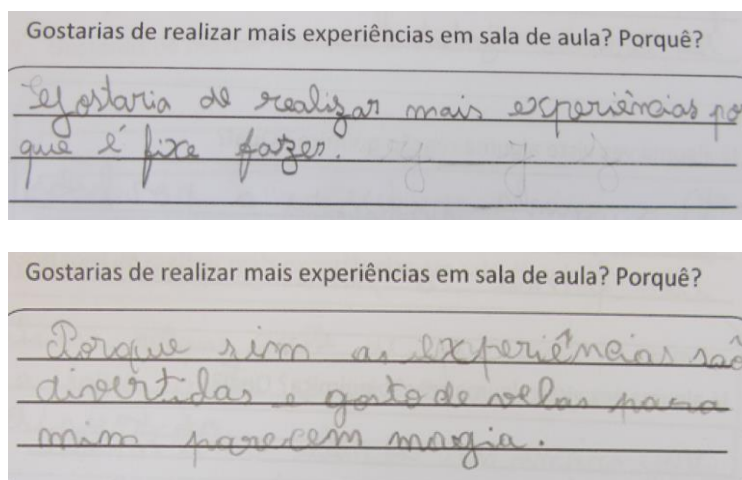 Gostarias de realizar mais experiências em sala de aula? Porquê?
Gostaria de realizar mais experiências po
que é fixe fazer.
Gostarias de realizar mais experiências em sala de aula? Porquê?
Porque sim as experiências são
divertidas e gosto de velas para
mim parecem magia.